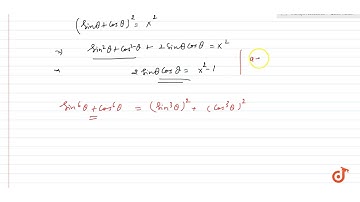 (sinθ+cosθ)² = x²
⇒ sin²θ+cos²θ + 2 sinθ cosθ = x²
2 sinθ cosθ = x²-1
a-
sin⁶θ + cos⁶θ = (sin³θ)² + (cos³θ)²
doubtnut